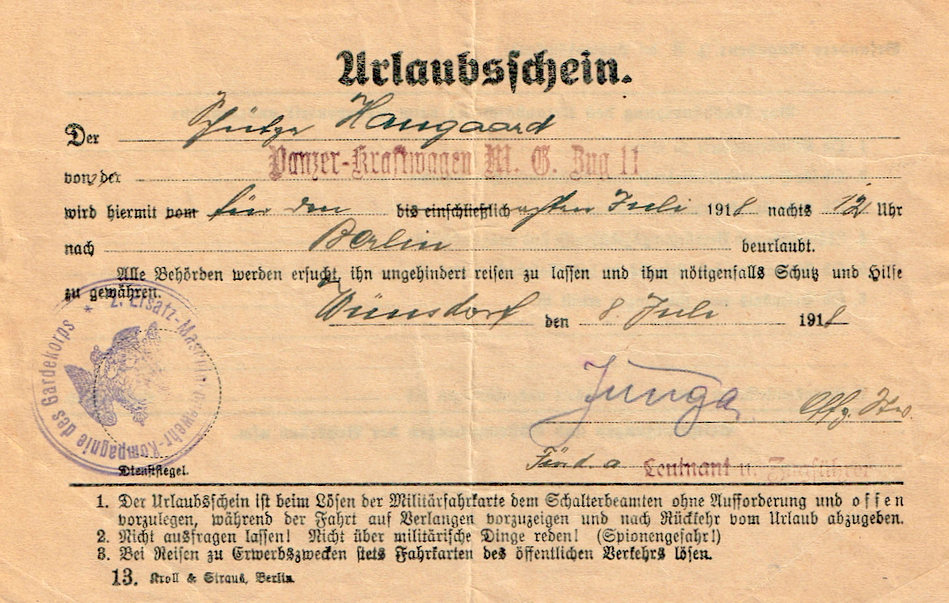 Urlaubsschein.
Der Schütze Haugaard
von der Panzer-Kraftwagen M. G. Zug 11
wird hiermit vom für den bis einschließlich 8ten Juli 1918 nachts 12 Uhr
nach Berlin beurlaubt.
Alle Behörden werden ersucht, ihn ungehindert reisen zu lassen und ihm nötigenfalls Schutz und Hilfe
zu gewähren.
Wünsdorf den 8. Juli 1918
2. Ersatz-Maschin.-Gewehr-Kompagnie des Gardekorps *
Junga
Leutnant u. Zugführer
Dienstsiegel.
1. Der Urlaubsschein ist beim Lösen der Militärfahrkarte dem Schalterbeamten ohne Aufforderung und offen
vorzulegen, während der Fahrt auf Verlangen vorzuzeigen und nach Rückkehr vom Urlaub abzugeben.
2. Nicht ausfragen lassen! Nicht über militärische Dinge reden! (Spionengefahr!)
3. Bei Reisen zu Erwerbszwecken stets Fahrkarten des öffentlichen Verkehrs lösen.
13. Kroll & Straus, Berlin.